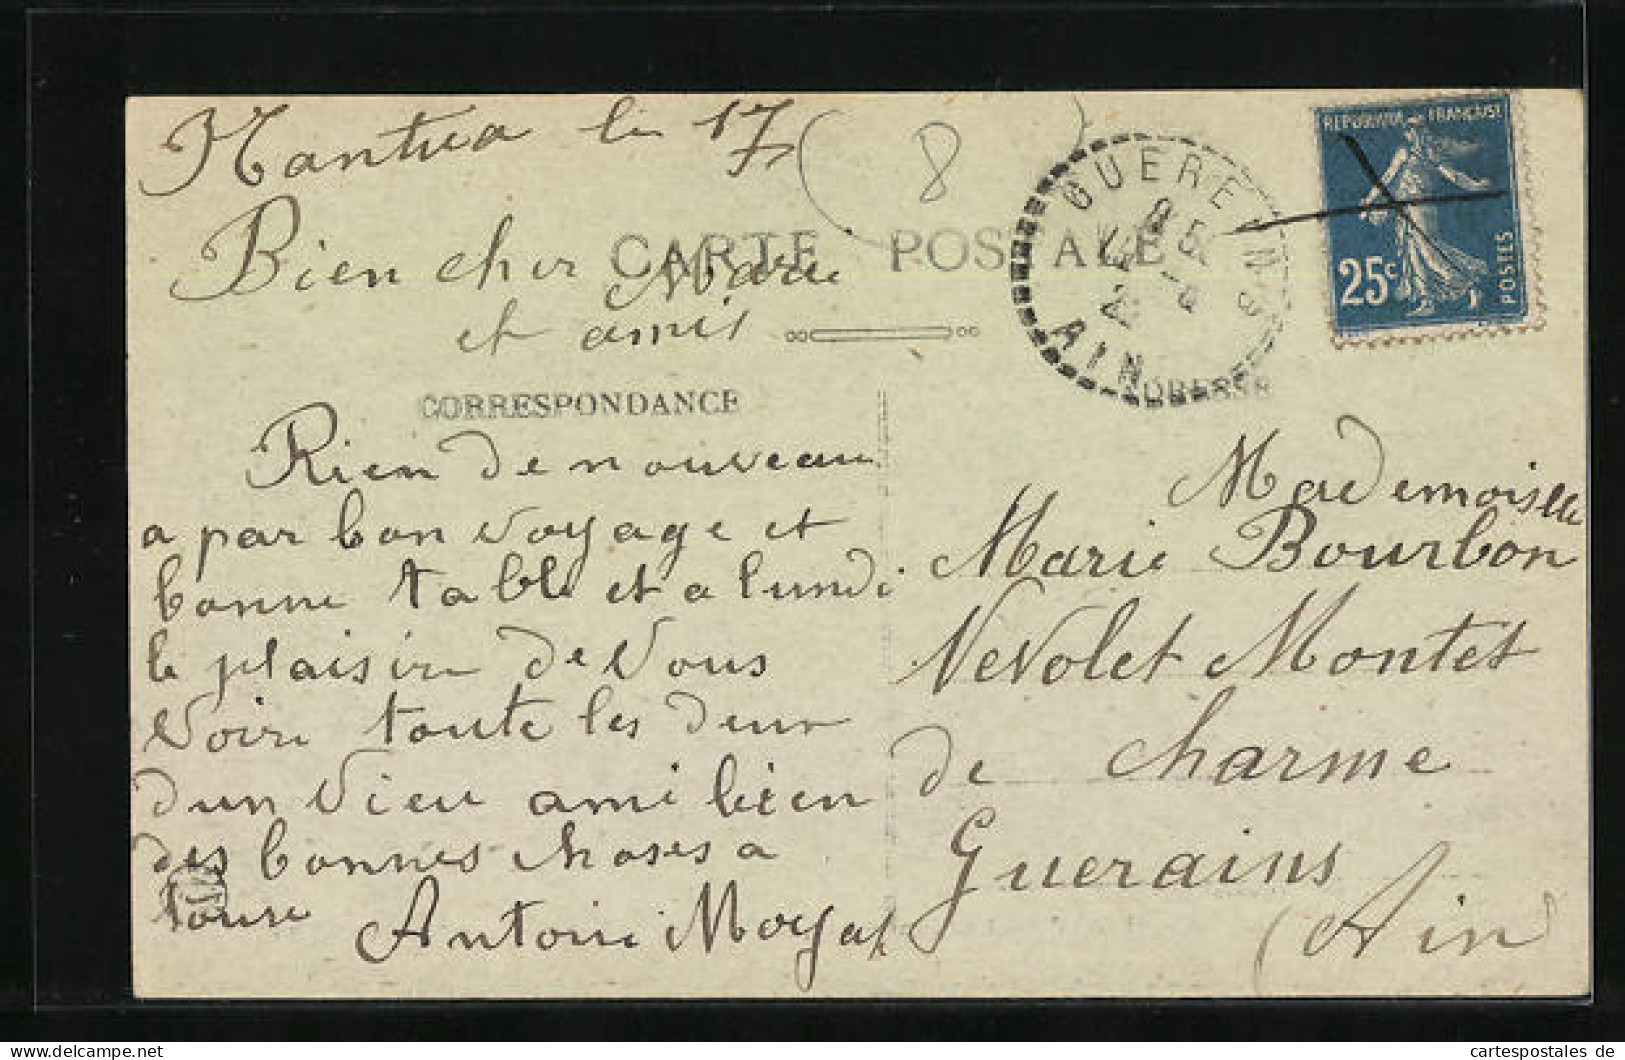 Nantua le 17
8
Bien cher Marie
et amis
CARTE POSTALE
CORRESPONDANCE
Rien de nouveau
a par bon voyage et
bonne table et a lundi
le plaisir de vous
voire toute les deux
dun vieu ami bien
des bonnes choses a
Antoine Moyat
GUEREINS
AIN
REPUBLIQUE FRANÇAISE
25c
POSTES
Mademoiselle
Marie Bourbon
Nevolet Montet
de charme
Guerains
(Ain
cartespostales de